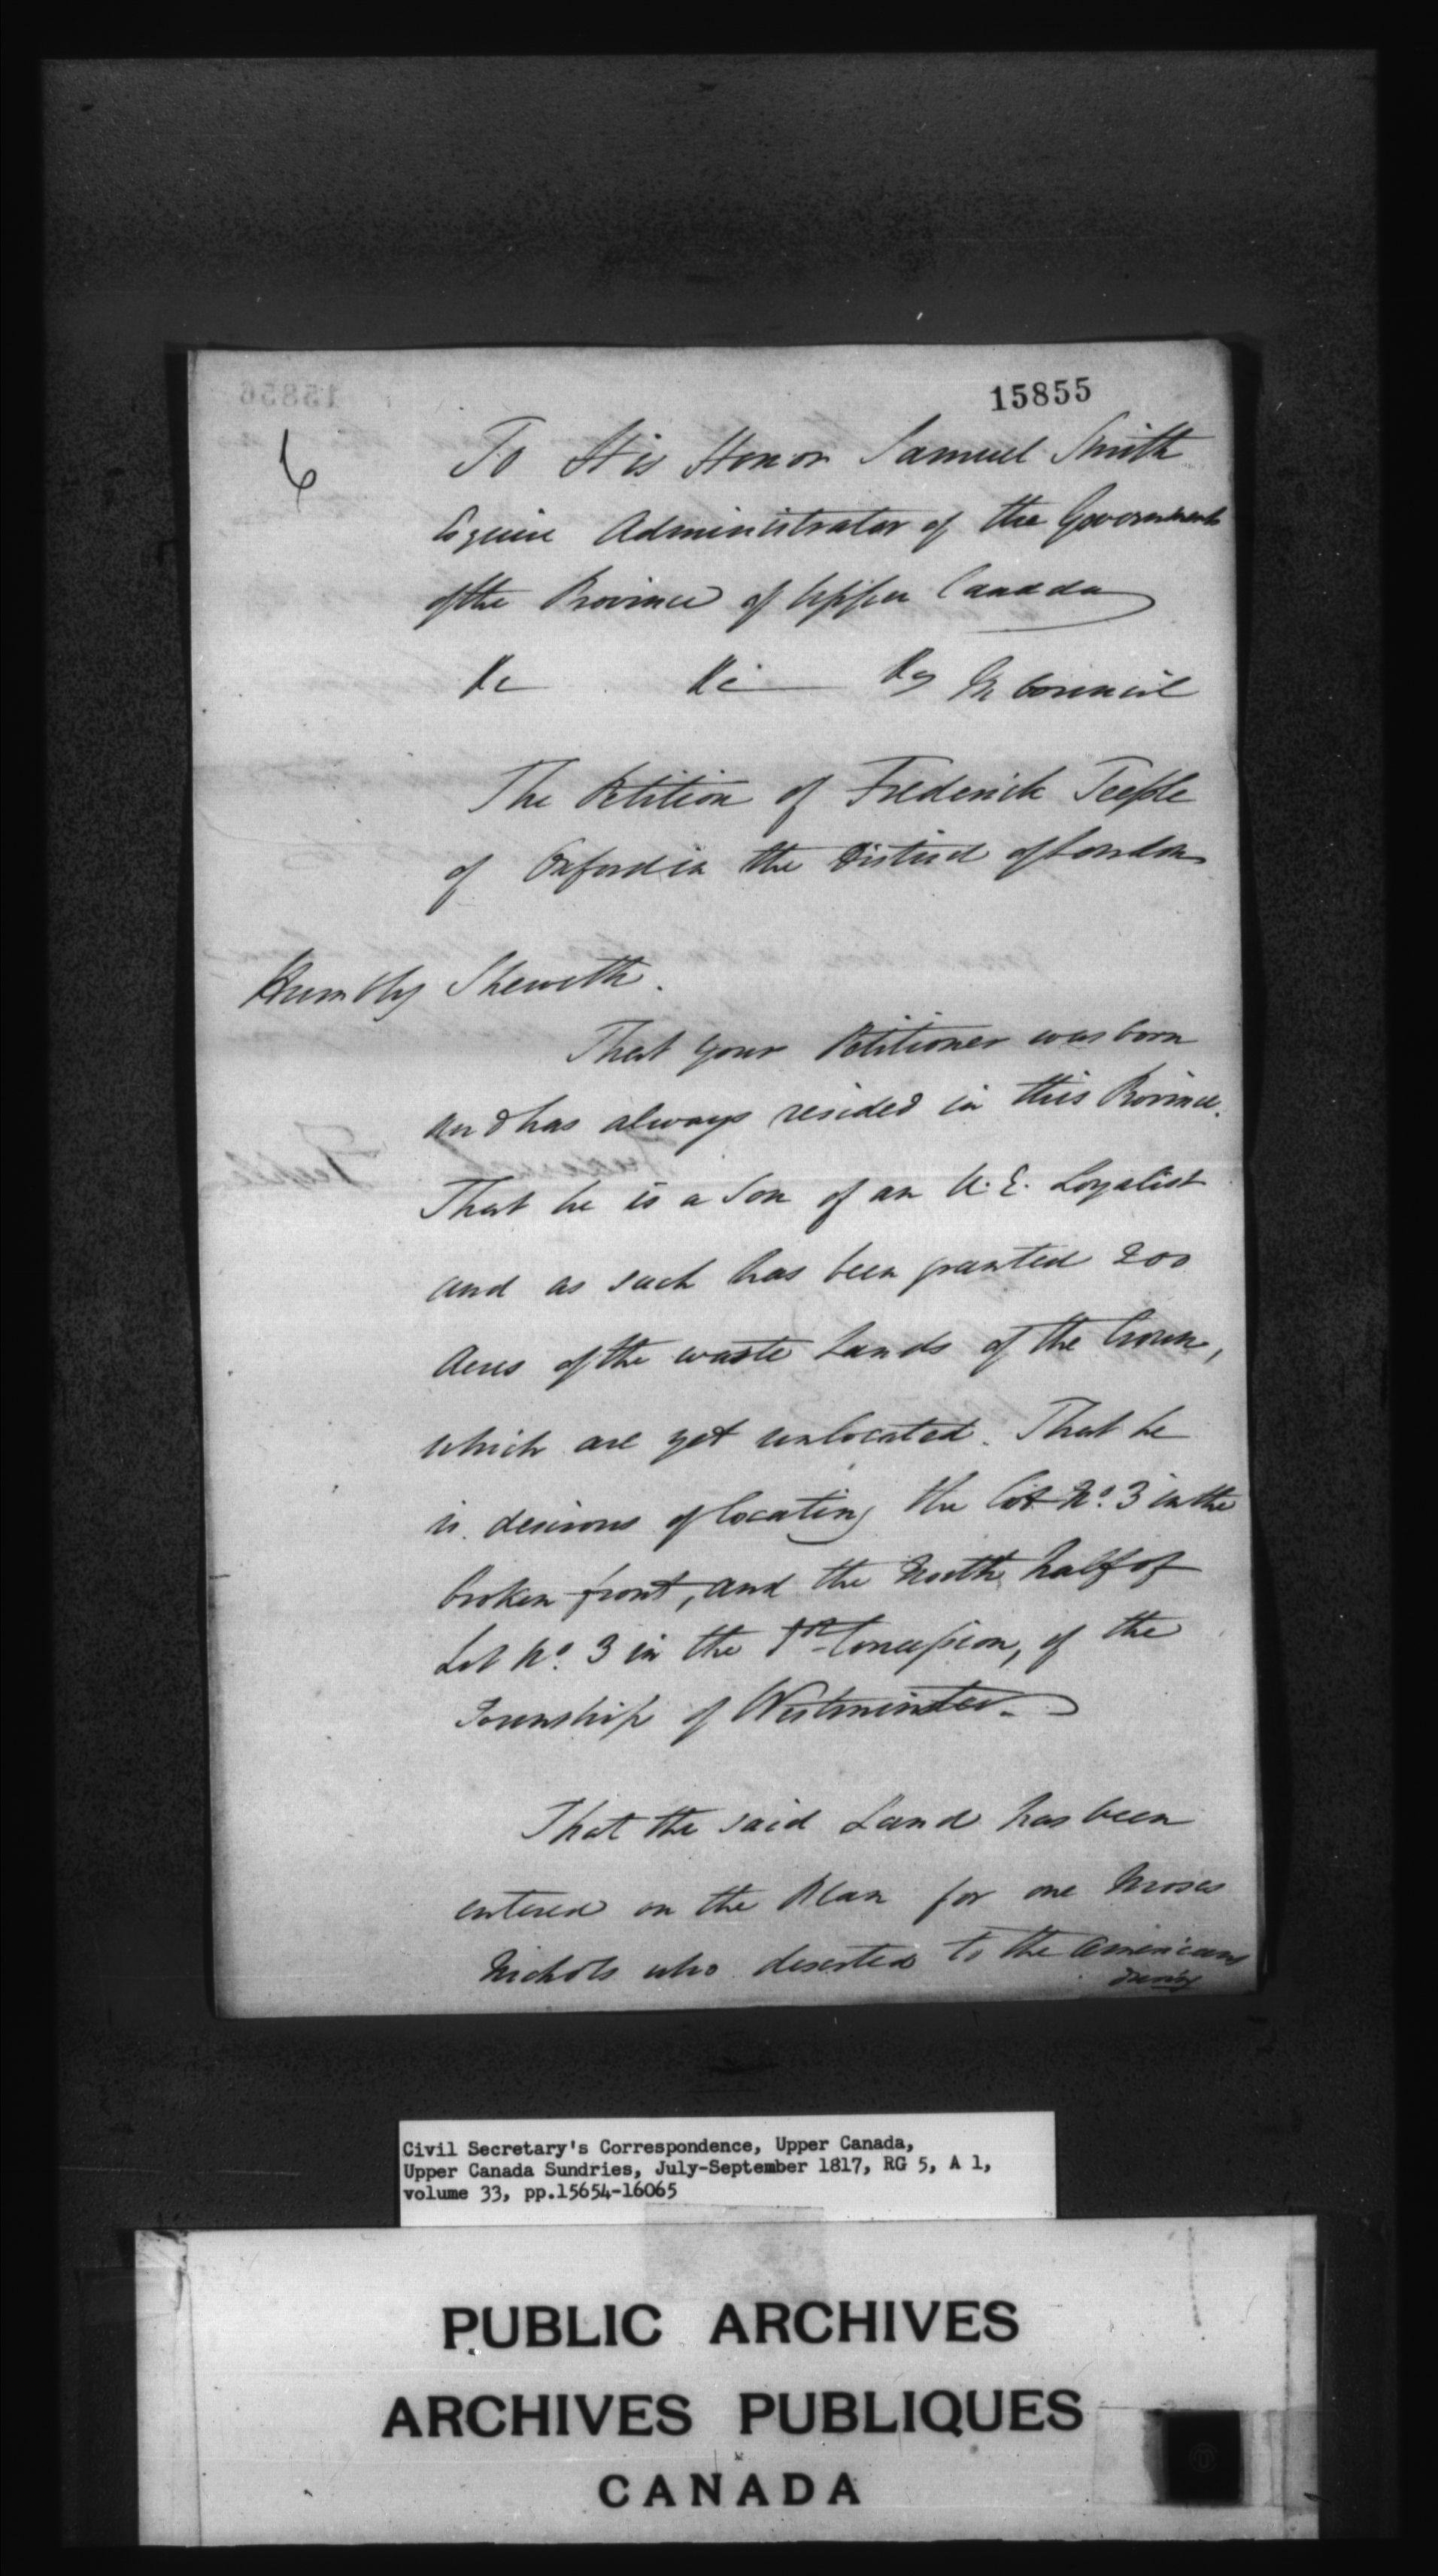 15855
6
To His Honor Samuel Smith
Esquire Administrator of the Government
of the Province of Upper Canada
&c &c &c In Council
The Petition of Frederick Teeple
of Oxford in the District of London
Humbly Sheweth.
That your Petitioner was born
and has always resided in this Province.
That he is a Son of an U. E. Loyalist
and as such has been granted 200
Acres of the waste Lands of the Crown,
which are yet unlocated. That he
is desirous of locating the Lot No. 3 in the
broken front, and the North half of
Lot No. 3 in the 1st Concession, of the
Township of Westminster.
That the said Land has been
entered on the Plan for one Moses
Nichols who deserted to the Americans
during
Civil Secretary's Correspondence, Upper Canada,
Upper Canada Sundries, July-September 1817, RG 5, A 1,
volume 33, pp.15654-16065
PUBLIC ARCHIVES
ARCHIVES PUBLIQUES
CANADA